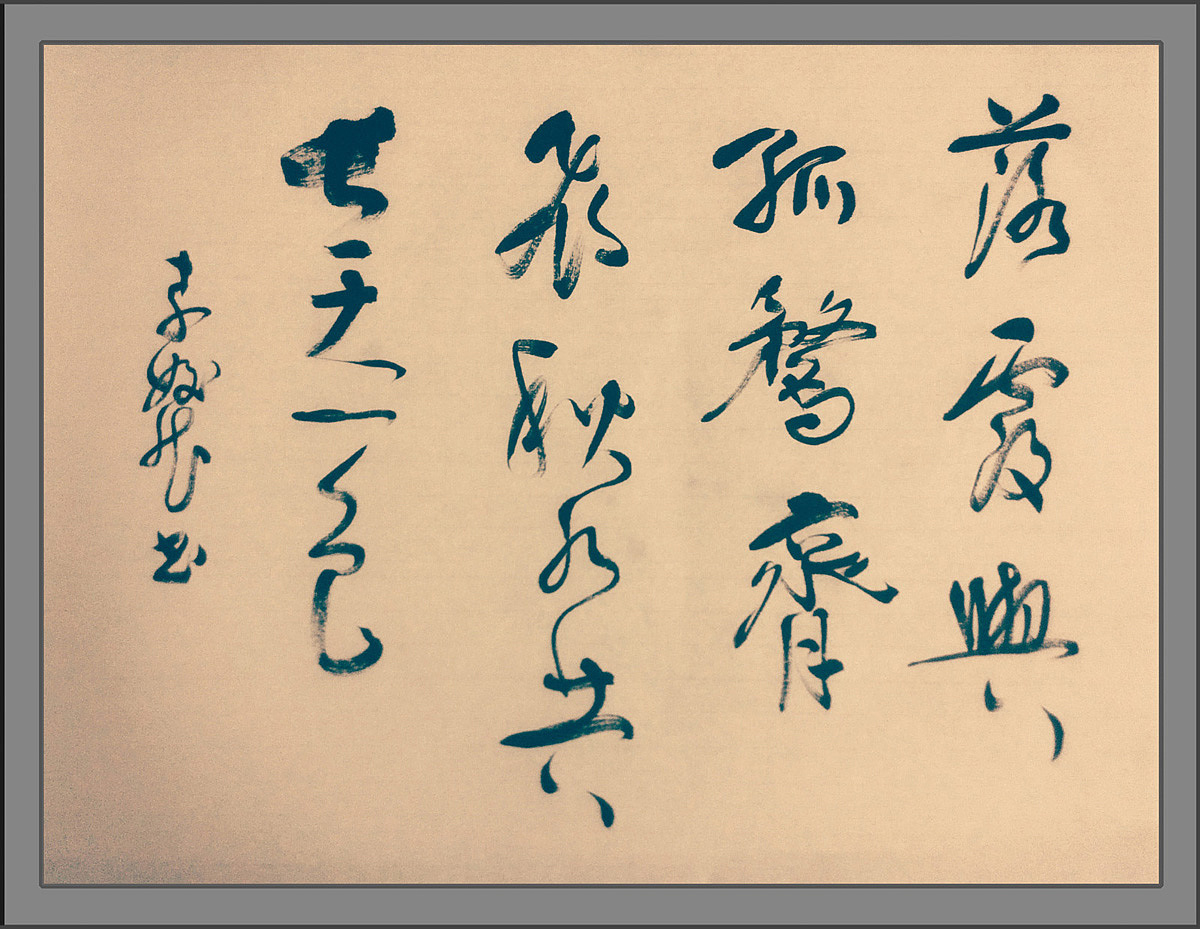 落霞與
孤鶩齊
飛秋水共
長天一色
书